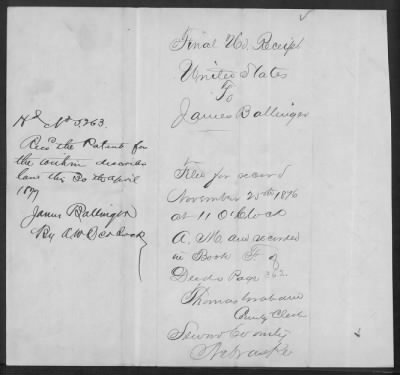 Final Rd. Receipt
United States
To
James Ballinger
Filed for record
November 25th 1876
at 11 O'Clock
A. M. and recorded
in Book F of
Deeds Page 262
Thomas Graham
County Clerk
Seward County
Nebraska
Recd the Patent for
the within described
land this 30th April
1877
James Ballinger
By